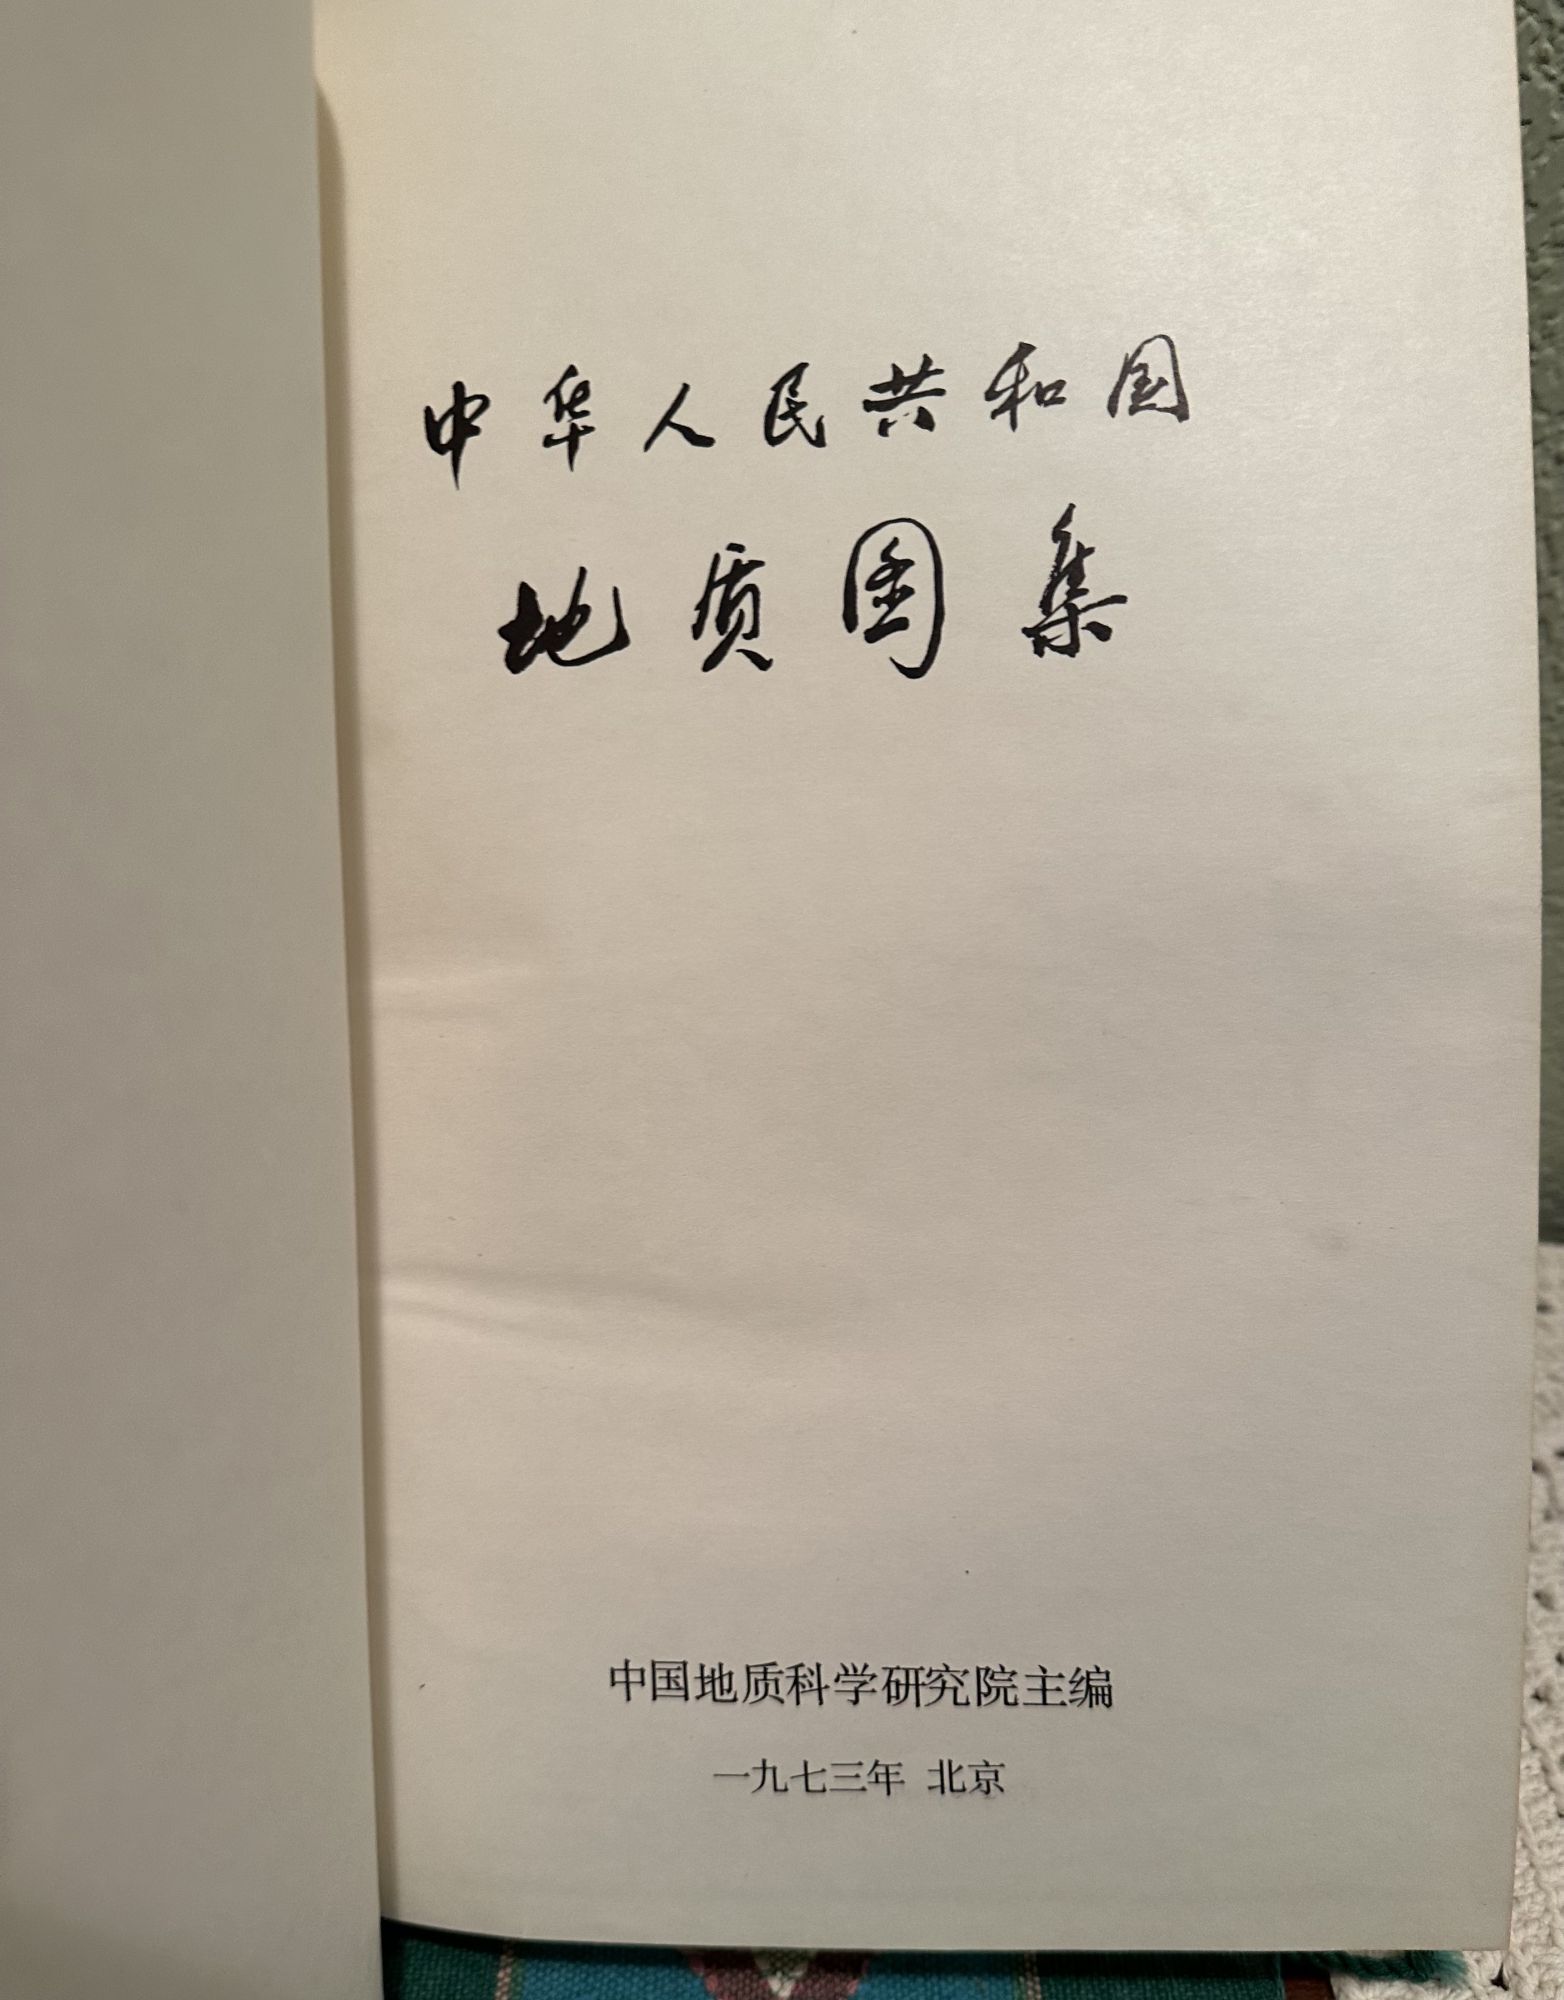 中华人民共和国
地质图集
中国地质科学研究院主编
一九七三年 北京